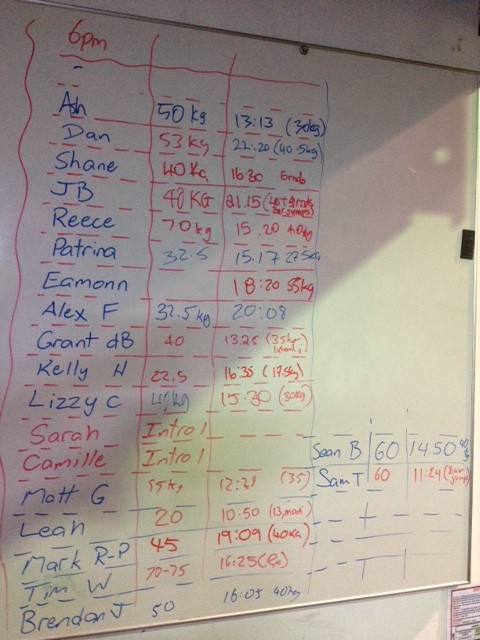 6pm
Ash 50 kg 13:13 (30kg)
Dan 53 kg 22:20 (40.5kg)
Shane 40 KG 16:30 5rnds
JB 48 KG 21.15
Reece 70 kg 15.20 40kg
Patrina 32.5 15.17 27.5kg
Eamonn 18:20 55kg
Alex F 32.5 kg 20:08
Grant dB 40 13.25
Kelly H 22.5 16:35 (17.5kg)
Lizzy C kg 15:30 (30kg)
Sarah Intro 1
Camille Intro 1
Sean B 60 14.50
Matt G 55kg 12:21 (35)
Sam T 60 11:24 (Bar
Leah 20 10.50
Mark R-P 45 19:09 (40KG)
Tim W 70-75 16:25
Brendan J 50 16:05 40kg